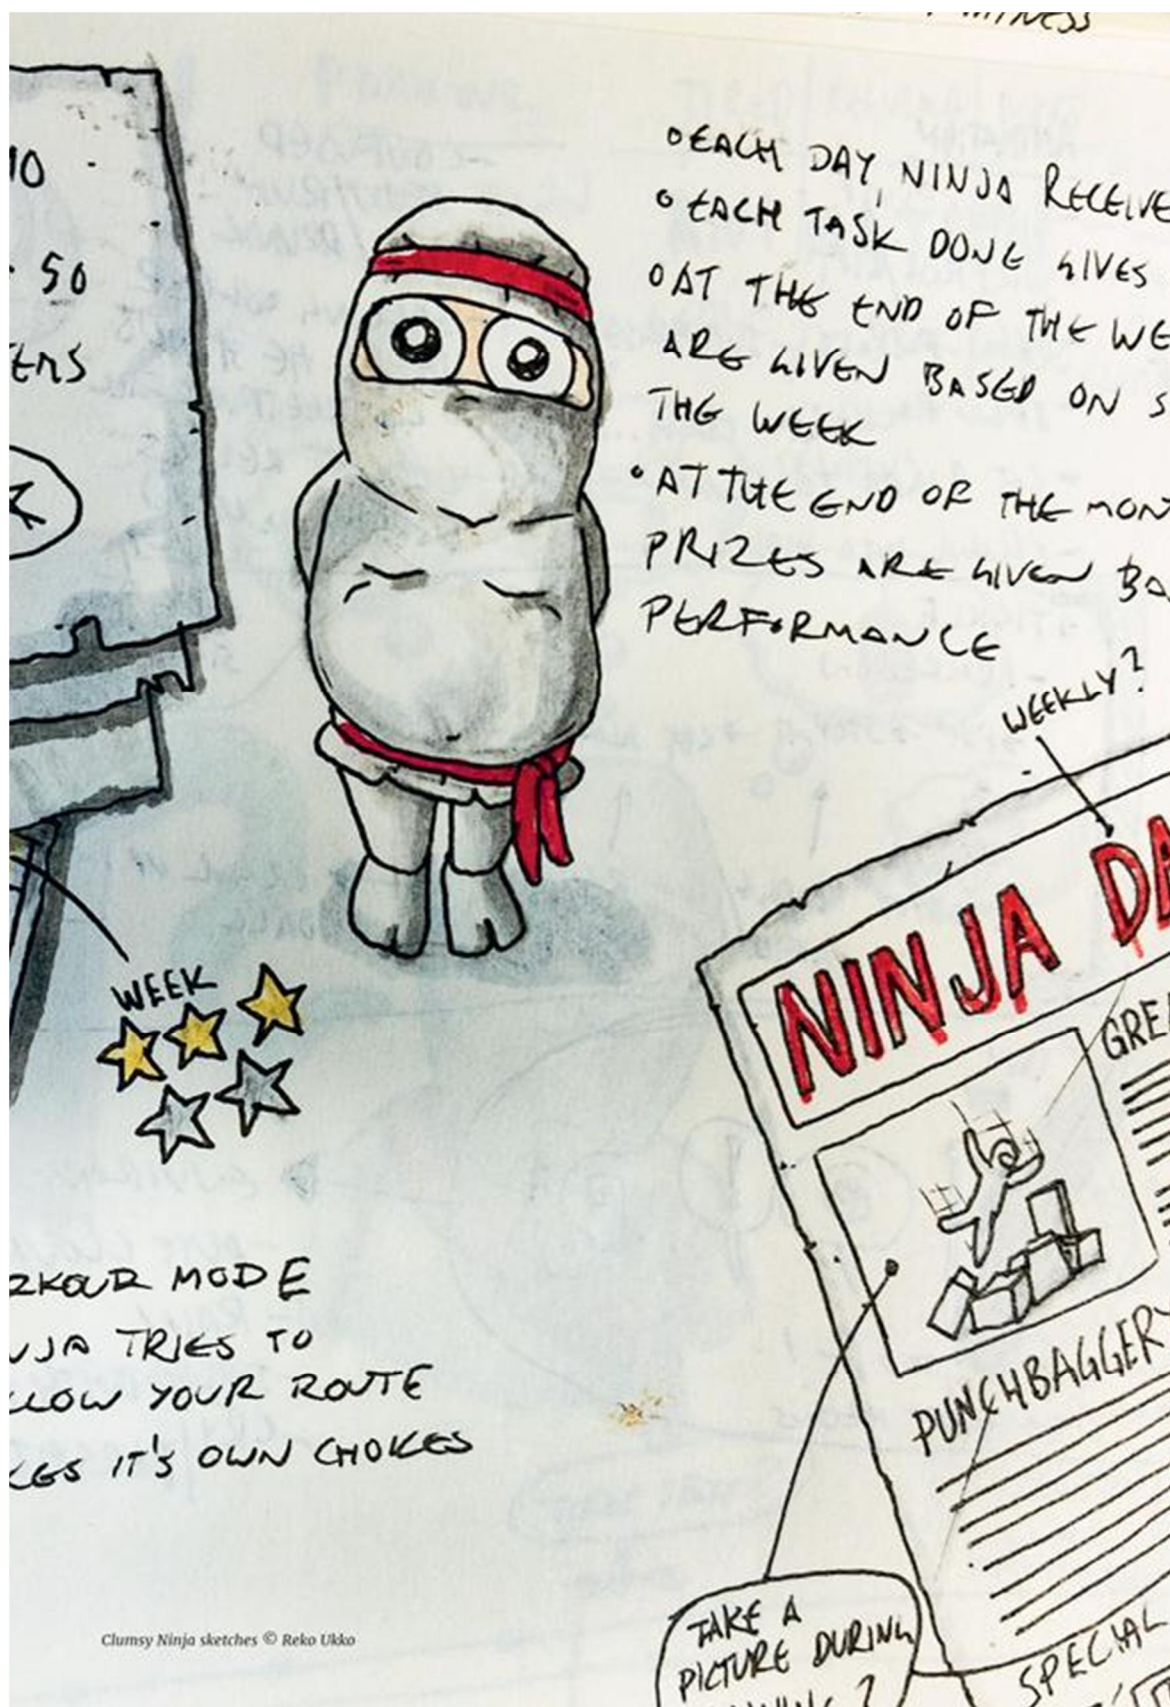 WITNESS
10
50
ERS
° EACH DAY, NINJA RECEIVE
° EACH TASK DONE GIVES
° AT THE END OF THE WE
ARE GIVEN BASED ON S
THE WEEK
° AT THE END OF THE MON
PRIZES ARE GIVEN BA
PERFORMANCE
WEEKLY?
WEEK
NINJA DA
GREA
PUNCHBAGGERY
SPECIAL
RKOUR MODE
NJA TRIES TO
LLOW YOUR ROUTE
KES IT'S OWN CHOICES
TAKE A
PICTURE DURING
Clumsy Ninja sketches © Reko Ukko